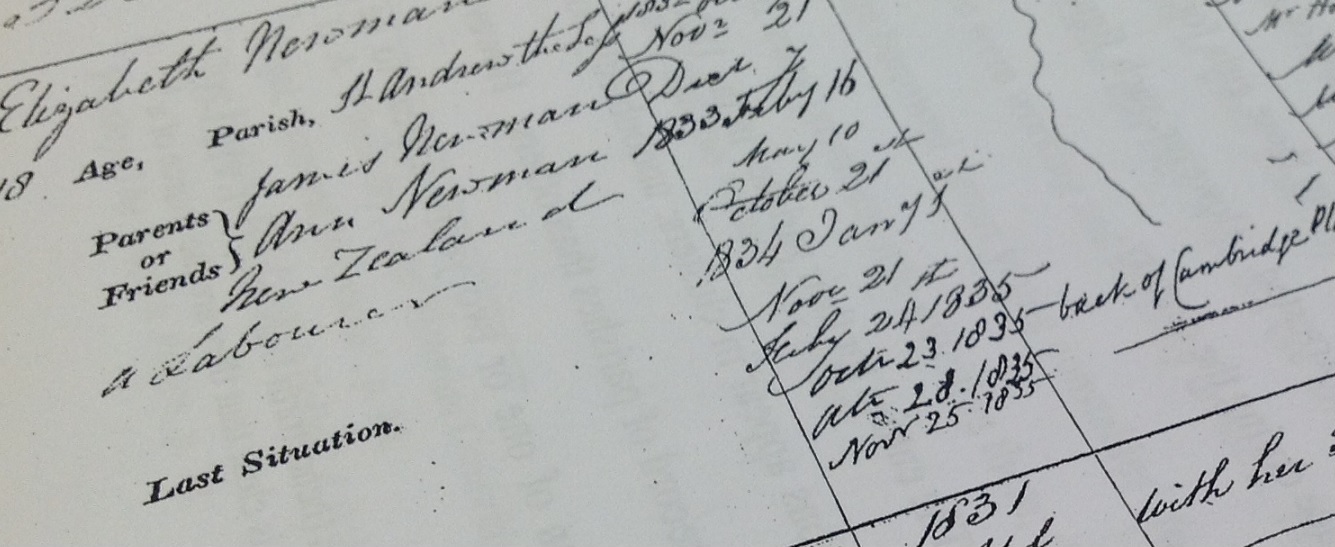 Elizabeth Newman
18 Age, Parish, St Andrew the Less
Parents or Friends } James Newman
Ann Newman
New Zealand
a Labourer
Last Situation.
Novr 21
Decr 7
1833 Feby 16
May 10
October 21 st
1834 Jany 1
Novr 21 st
Feby 24 1835
Octr 23. 1835 back of Cambridge Pl
28. 1835
Novr 25 1835
1831
with her
Mr